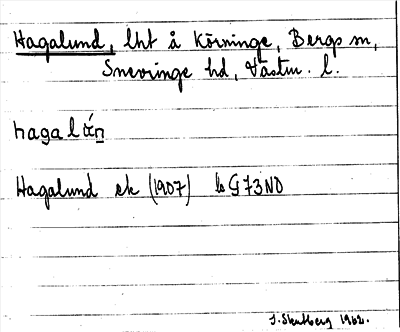 Hagalund, lht å Körninge, Bergs sn,
Snevringe hd, Västm. l.
hagalǽn
Hagalund ek (1907) bG73NO
S. Stahlberg 1962.